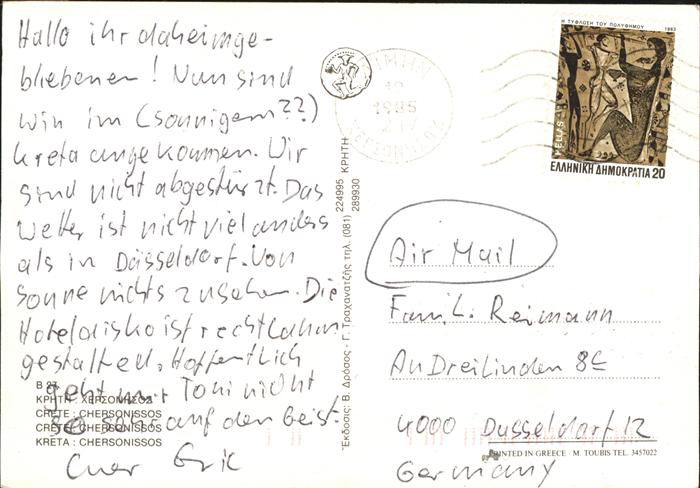 Hallo ihr daheimge-
bliebenen! Nun sind
wir im (sonnigem??)
Kreta angekommen. Wir
sind nicht abgestürzt. Das
Wetter ist nicht viel anders
als in Düsseldorf. Von
Sonne nichts zu sehen. Die
Hoteldisko ist recht lahm
gestalted. Hoffentlich
geht mir Toni nicht
so sehr auf den Geist.
Euer Eric
B 27
ΚΡΗΤΗ : ΧΕΡΣΟΝΗΣΟΣ
CRETE : CHERSONISSOS
CRETE : CHERSONISSOS
KRETA : CHERSONISSOS
"Εκδοσις: Β. Δρόσος - Γ. Τραχανατζής τηλ. (081) 224995 ΚΡΗΤΗ
289930
1985
ΧΕΡΣΟΝΗΣΟΣ
Η ΤΥΦΛΩΣΗ ΤΟΥ ΠΟΛΥΦΗΜΟΥ 1983
HELLAS
ΕΛΛΗΝΙΚΗ ΔΗΜΟΚΡΑΤΙΑ 20
Air Mail
Famil. Reimann
An Dreilinden 8c
4000 Dusseldorf 12
Germany
PRINTED IN GREECE - M. TOUBIS TEL. 3457022